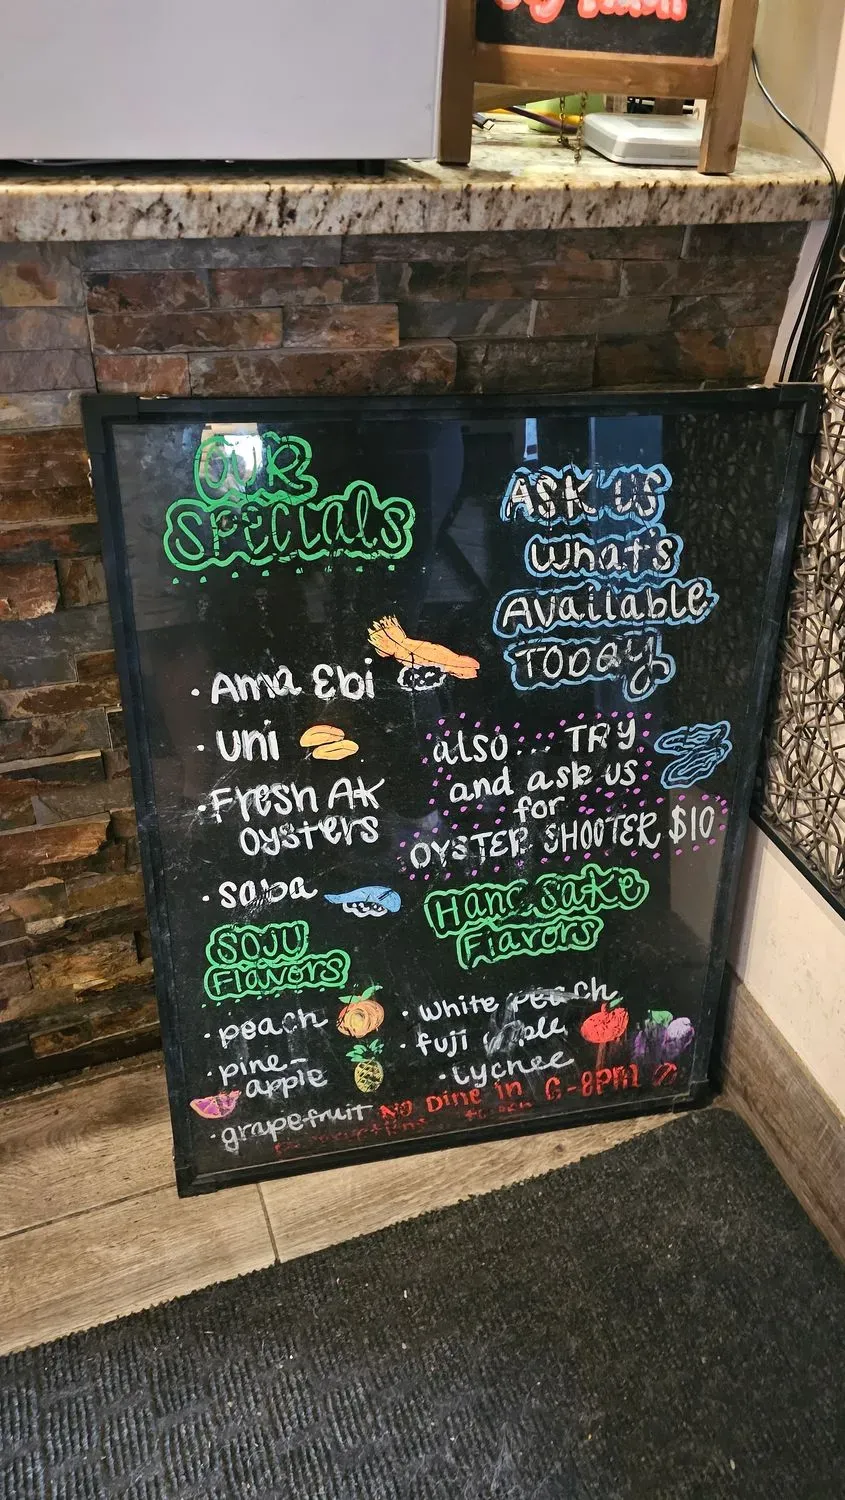 OUR
SPECIALS
· Ama Ebi
· uni
· Fresh AK
oysters
· saba
ASK US
What's
Available
TODAY
also... TRY
and ask us
for
OYSTER SHOOTER $10
SOJU
Flavors
· peach
· pine-
apple
· grapefruit
Hana Sake
Flavors
· white peach
· fuji apple
· Lychee
No Dine in 6-8pm